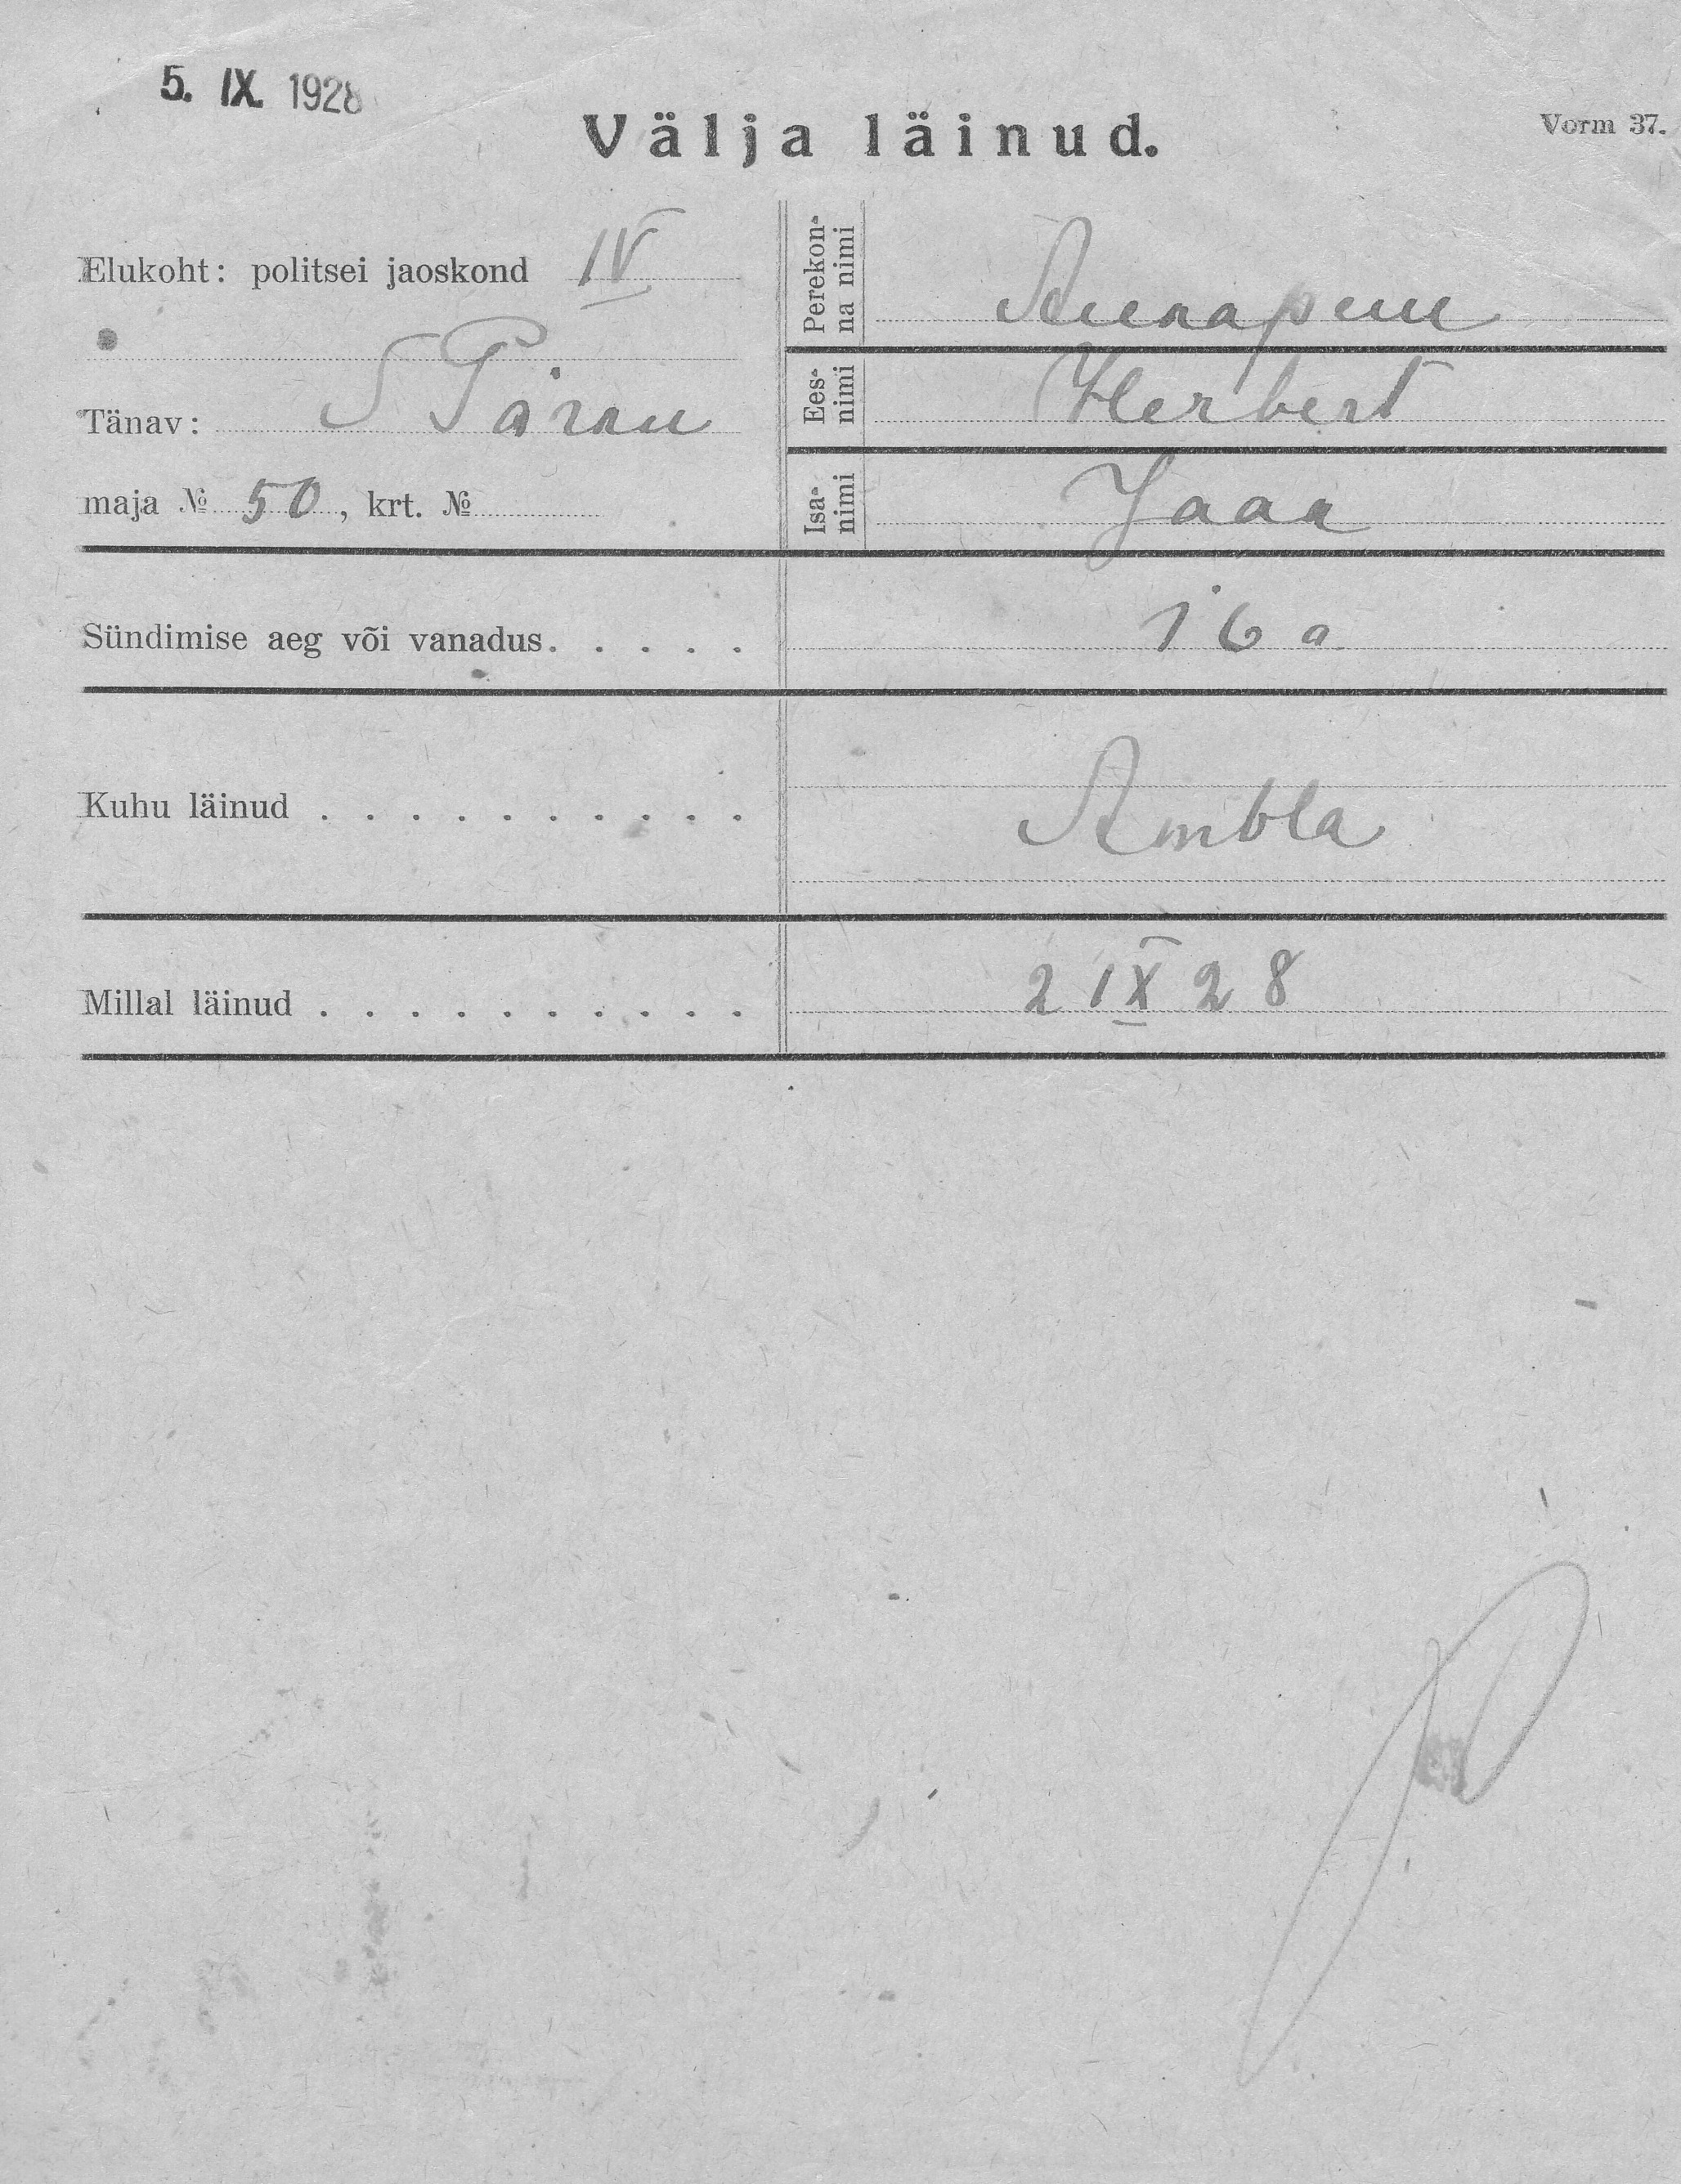 5. IX. 1928
Välja läinud.
Vorm 37.
Elukoht: politsei jaoskond IV
Tänav: S Pärnu
maja № 50, krt. №
Perekonna nimi
Aunapuu
Eesnimi
Herbert
Isanimi
Jaan
Sündimise aeg või vanadus. . . . .
16 a
Kuhu läinud . . . . . . . . . .
Ambla
Millal läinud . . . . . . . . . .
2 IX 28